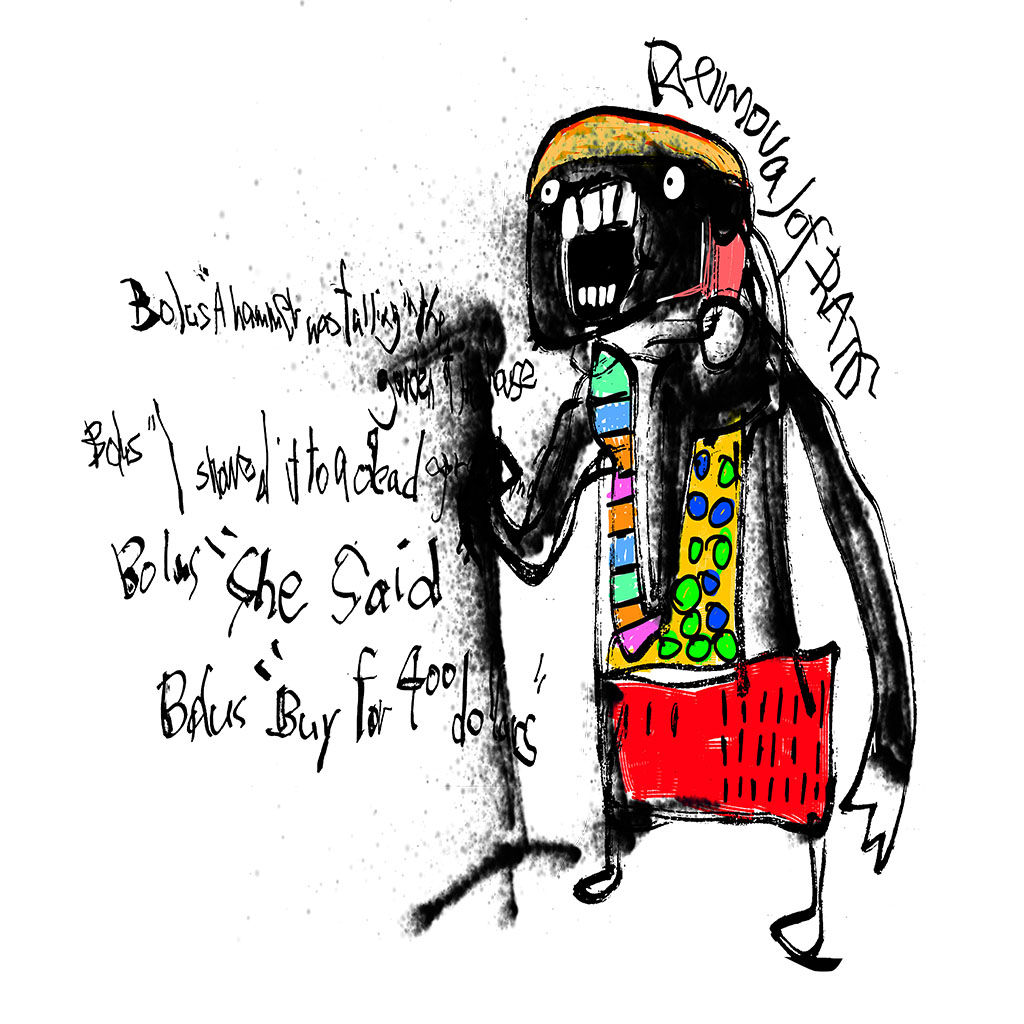 Removal of RATS
Bolus "A hammer was falling in the
garden house
Bolus "I showed it to a dead
Bolus "She Said
Bolus "Buy for 400 dollars"